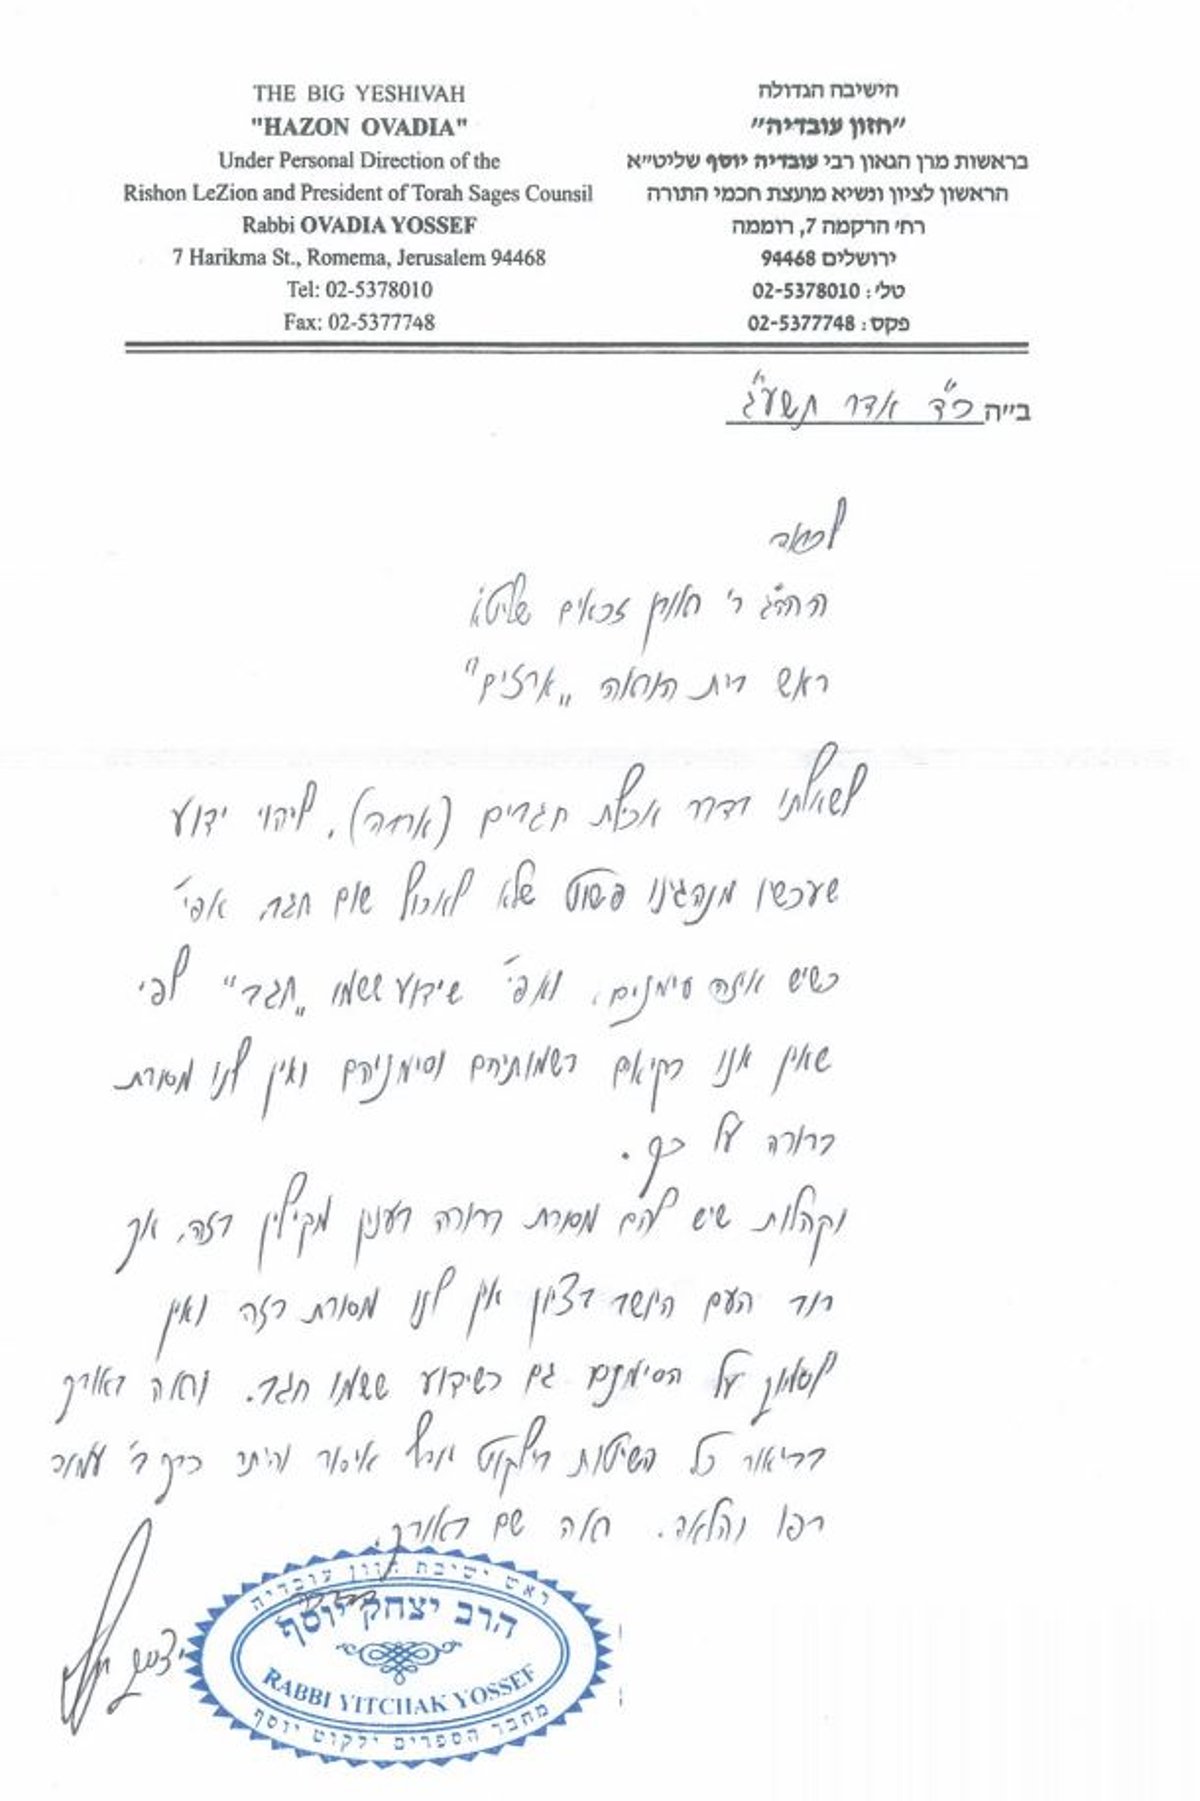 THE BIG YESHIVAH
"HAZON OVADIA"
Under Personal Direction of the
Rishon LeZion and President of Torah Sages Counsil
Rabbi OVADIA YOSSEF
7 Harikma St., Romema, Jerusalem 94468
Tel: 02-5378010
Fax: 02-5377748
הישיבה הגדולה
"חזון עובדיה"
בראשות מרן הגאון רבי עובדיה יוסף שליט"א
הראשון לציון ונשיא מועצת חכמי התורה
רח' הרקמה 7, רוממה
ירושלים 94468
טל': 02-5378010
פקס: 02-5377748
ב"ה כ"ד אדר תשע"ג
לכבוד
הרה"ג ר' זכאים שליט"א
ראש בית הוראה "ארזים"
לשאלתו בדבר אכילת חגבים (ארבה), ליהוי ידוע
שעכשיו מנהגינו פשוט שלא לאכול שום חגב, אפי'
כשיש איזה סימנים, ואפי' שידוע ששמו "חגב" לפי
שאין אנו בקיאים בשמותיהם וסימניהם ואין לנו מסורת
ברורה על כך.
וקהלות שיש להם מסורת ברורה בענין מקילין בזה, אך
רוב העם היושב בציון אין לנו מסורת בזה ואין
לסמוך על הסימנים גם כשידוע ששמו חגב. וראה באורך
בביאור כל השיטות בילקוט יוסף איסור והיתר כרך ב' עמוד
רפו והלאה. ראה שם באורך.
בברכה
יצחק יוסף
ראש ישיבת חזון עובדיה
הרב יצחק יוסף
RABBI YITCHAK YOSSEF
מחבר הספרים ילקוט יוסף